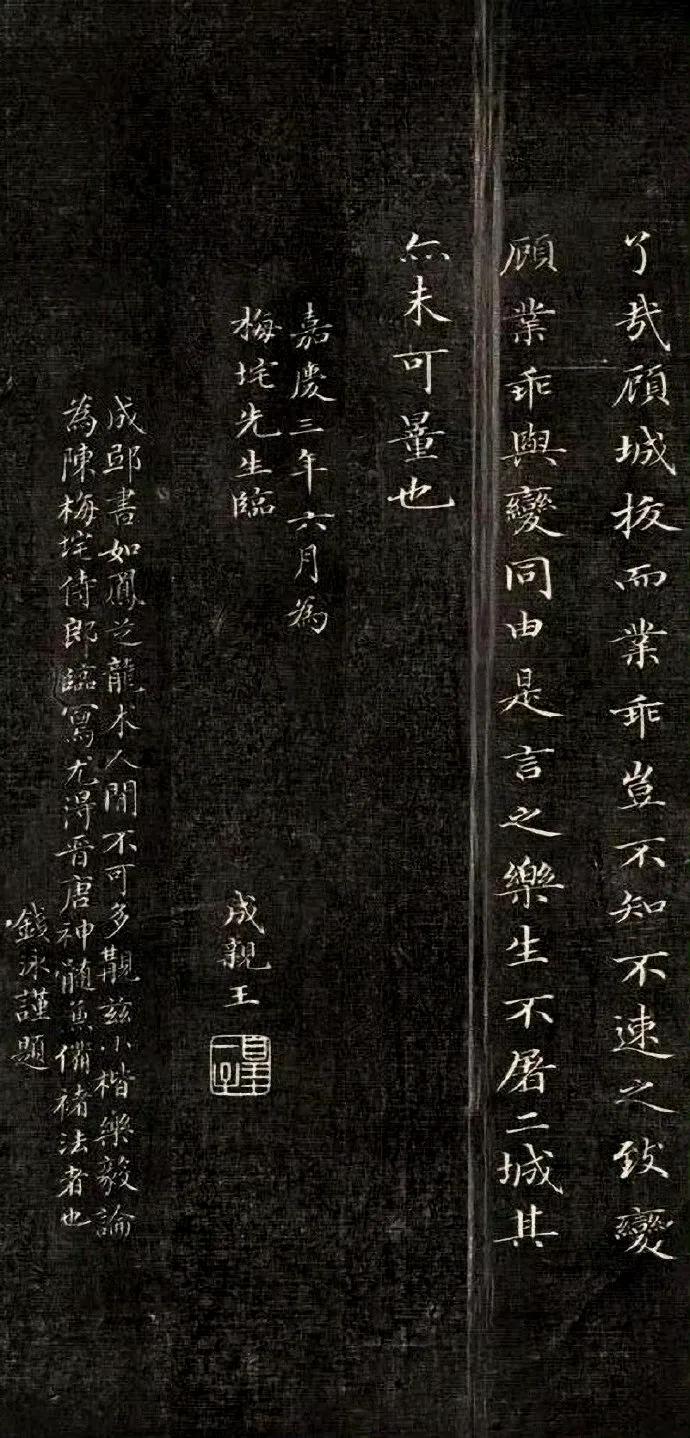 了哉顧城拔而業乖豈不知不速之致變
顧業乖與變同由是言之樂生不屠二城其
亦未可量也
嘉慶三年六月為
梅垞先生臨
成親王
成邸書如鳳之龍术人間不可多覯兹小楷樂毅論
為陳梅垞侍郎臨寫尤得晉唐神髓兼備褚法者也
錢泳謹題